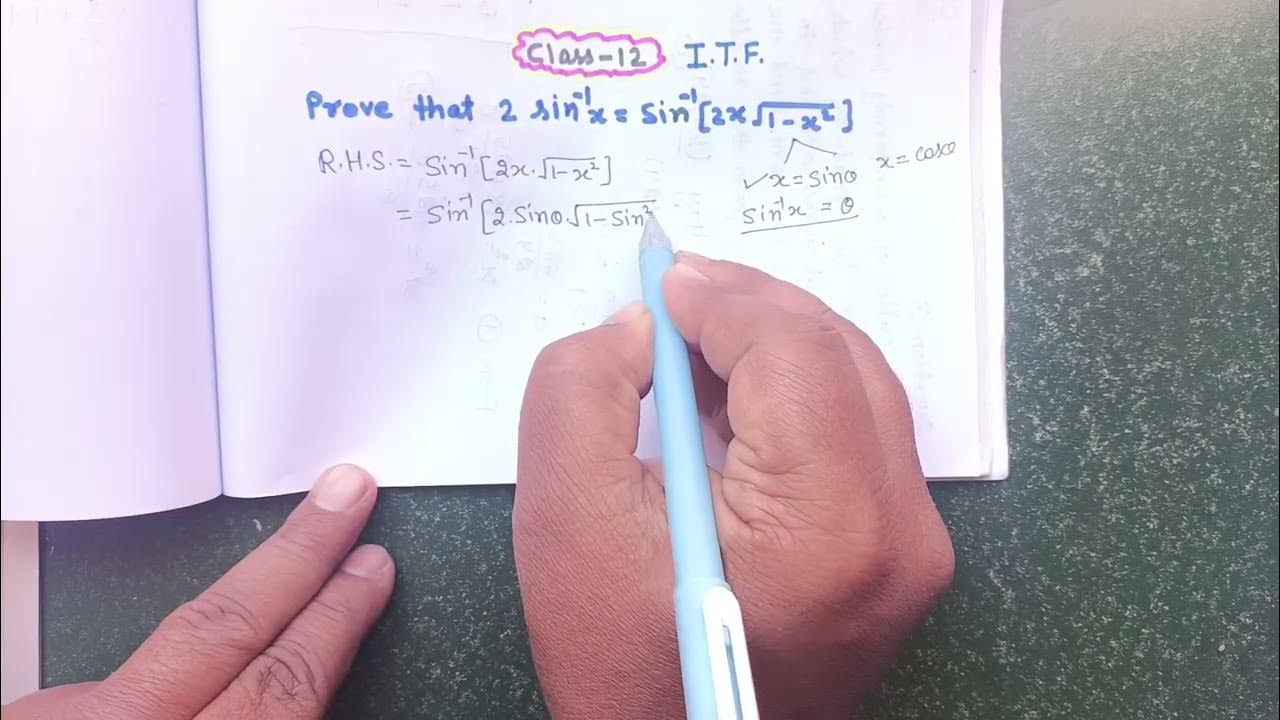 Class-12 I.T.F.
Prove that 2 sin⁻¹x = sin⁻¹[2x√1-x²]
R.H.S. = Sin⁻¹[2x.√1-x²]
= Sin⁻¹[2.Sinθ.√1-Sin²
✓x = sinθ x = cosθ
sin⁻¹x = θ